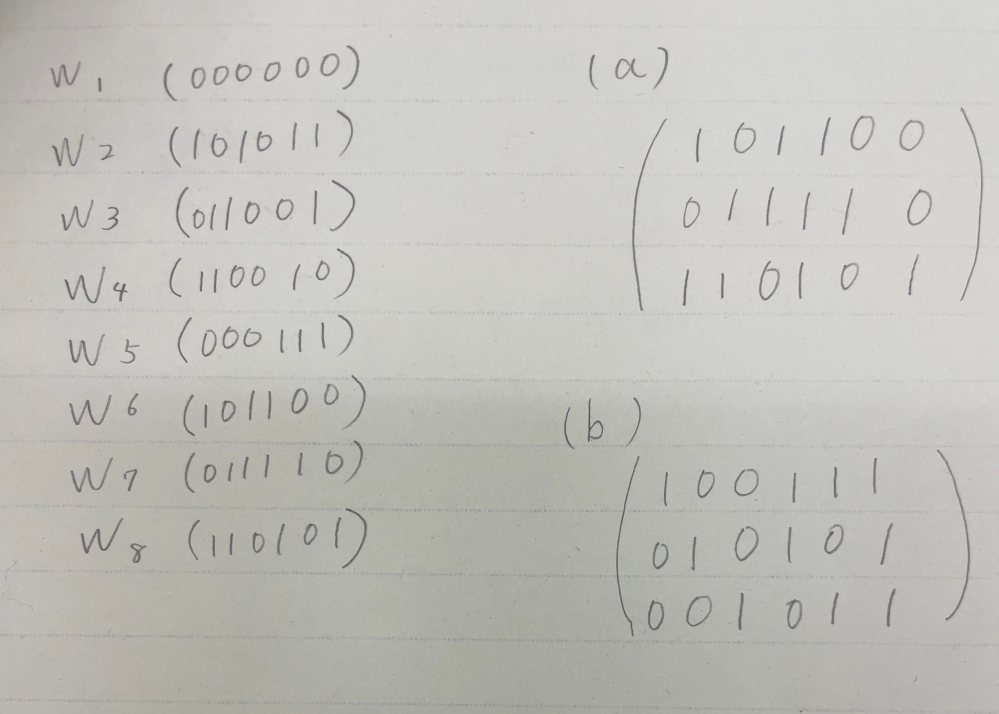 W1 (000000)
W2 (101011)
W3 (011001)
W4 (110010)
W5 (000111)
W6 (101100)
W7 (011110)
W8 (110101)
(a)
1 0 1 1 0 0
0 1 1 1 1 0
1 1 0 1 0 1
(b)
1 0 0 1 1 1
0 1 0 1 0 1
0 0 1 0 1 1